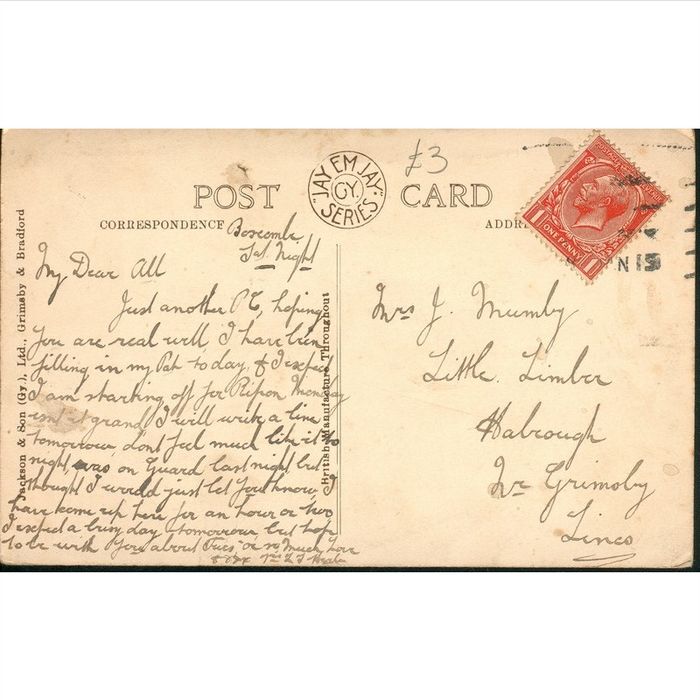 £3
POST CARD
"JAY EM JAY"
GY.
SERIES
CORRESPONDENCE
ADDRE
POSTAGE
ONE PENNY
1 1
N 19
Boscombe
Sat Night
My Dear All
Just another P C, hoping
you are real well I have been
filling in my Pah today, & I expect
I am starting off for Ripon Monday
isnt it grand I will write a line
tomorrow, dont feel much like it to
night, was on Guard last night, but
thought I would just let you know, I
have come up here for an hour or two
I expect a busy day tomorrow but hope
to be with you about Tues or so Much Love
Mrs J. Mumby
Little Limber
Habrough
Nr Grimsby
Lincs
Jackson & Son (Gy.), Ltd., Grimsby & Bradford
British Manufacture Throughout